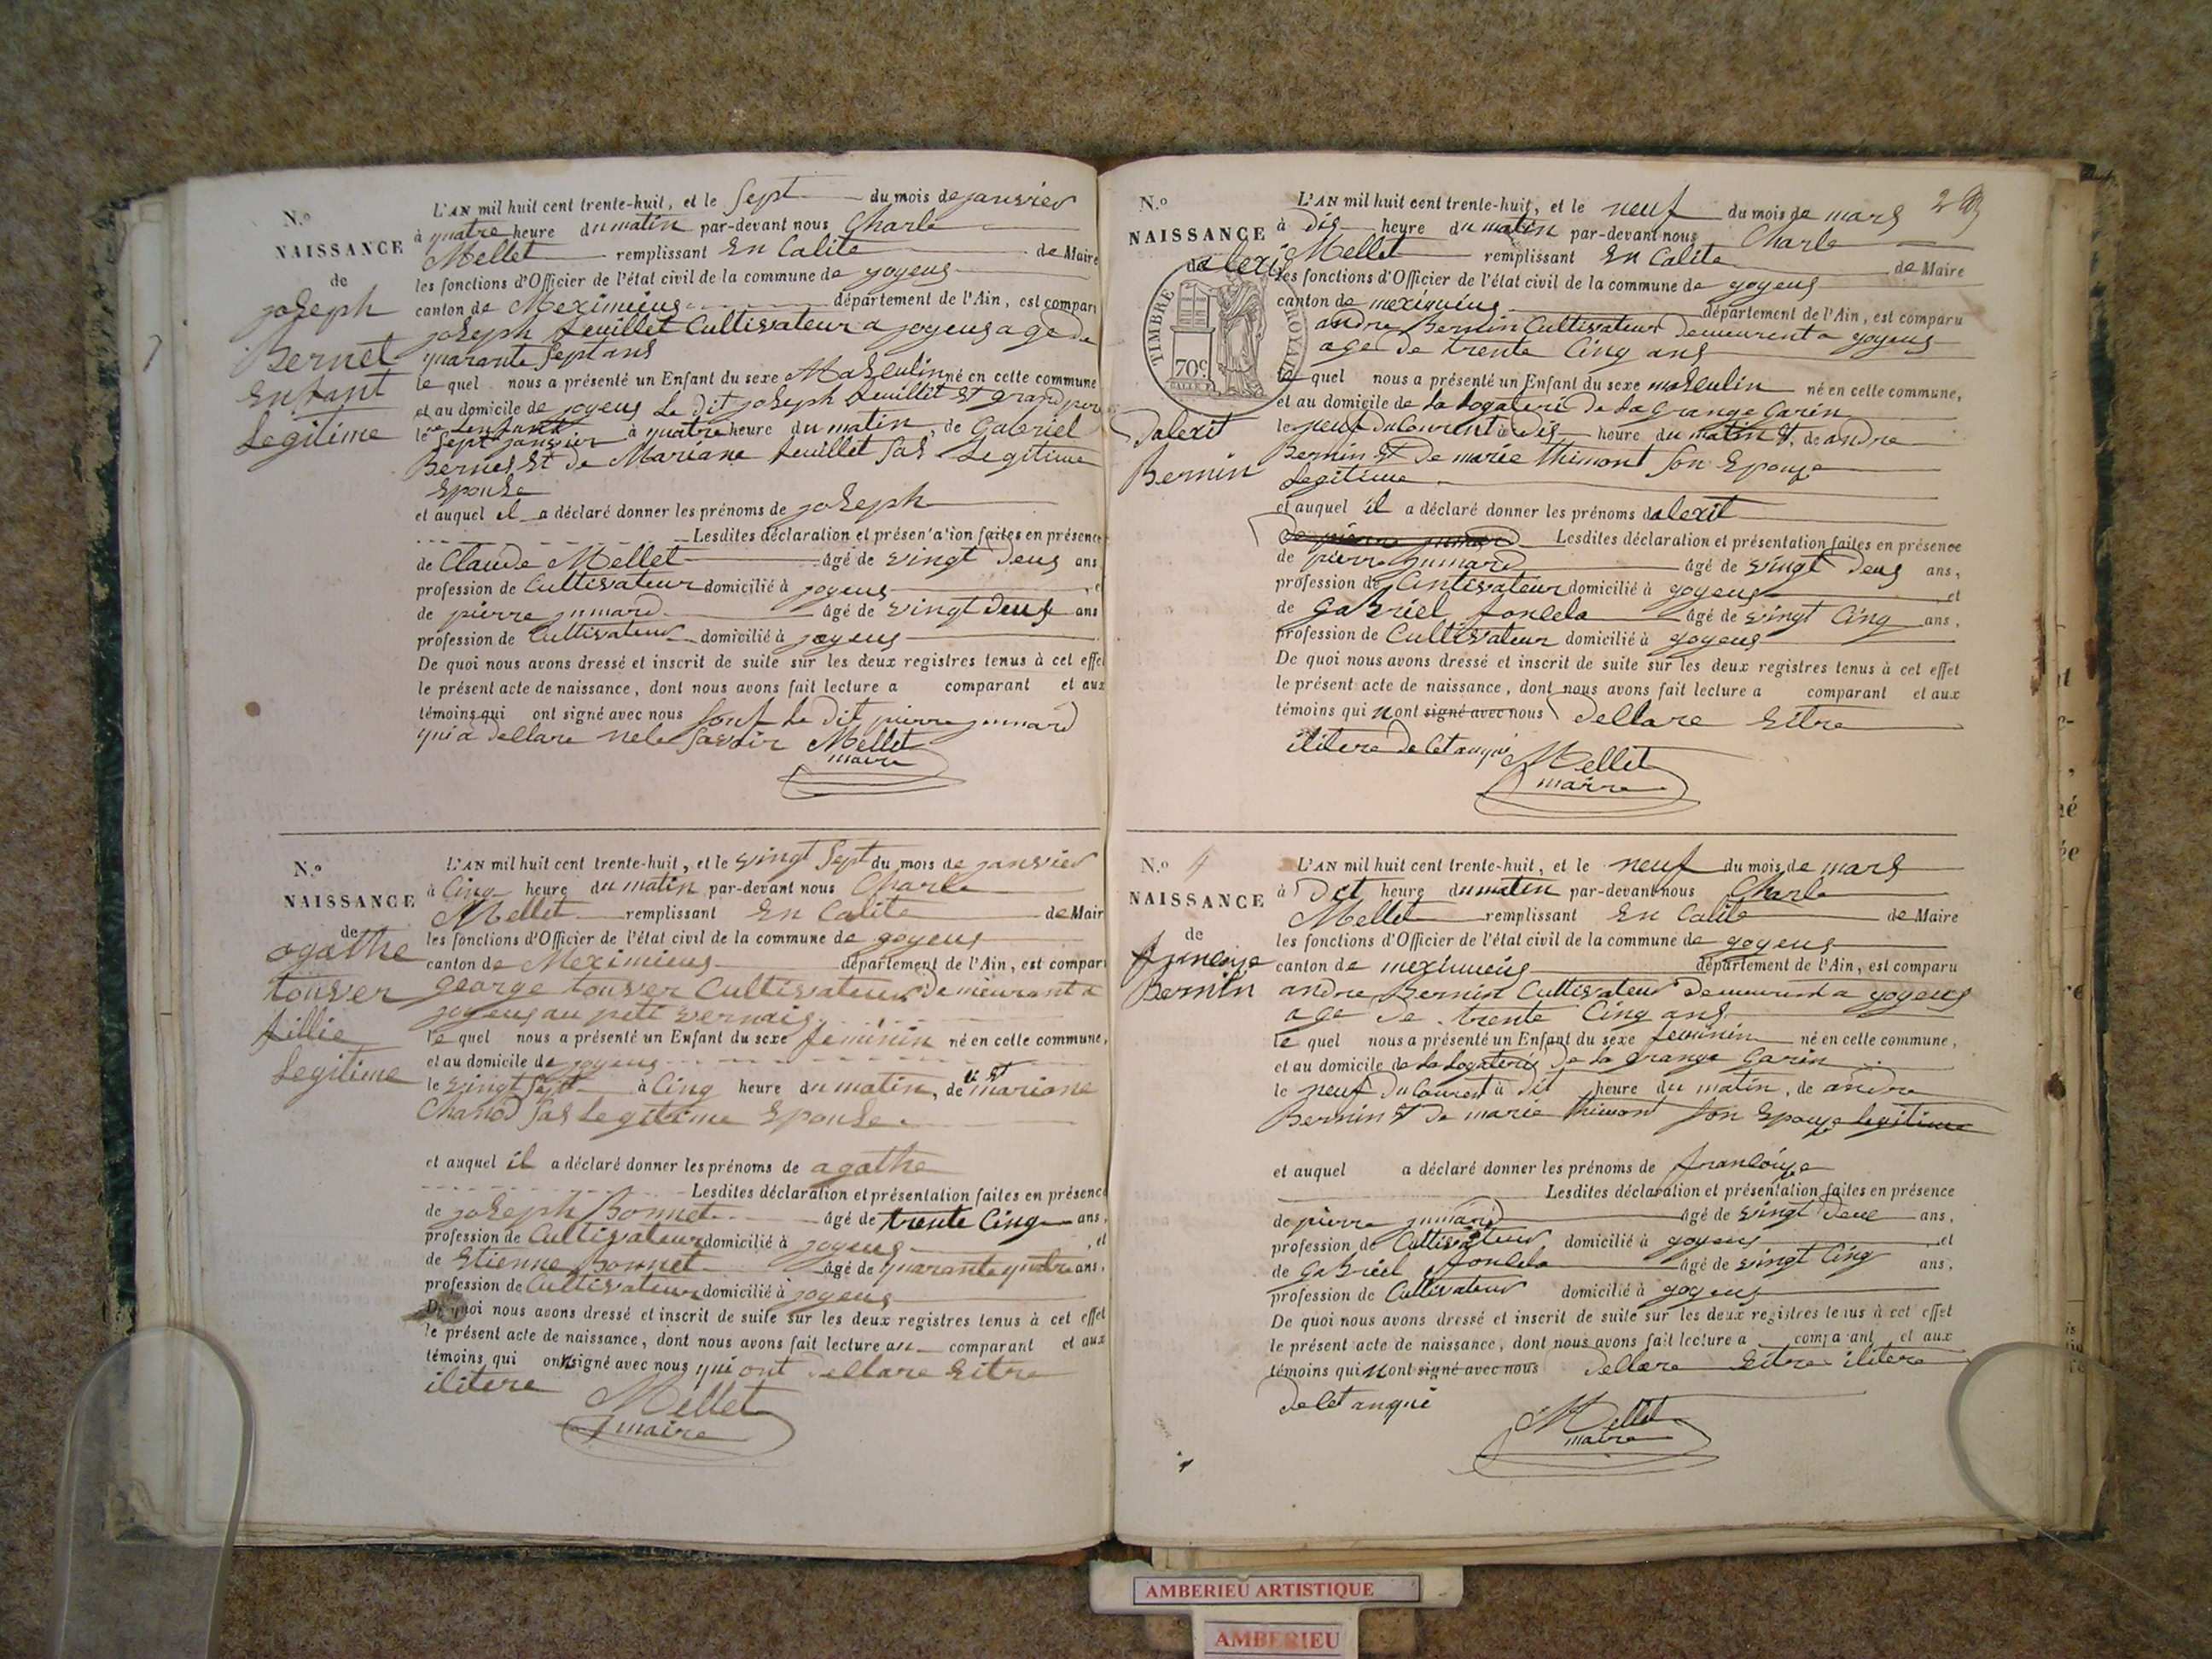 N.º
NAISSANCE
de
joseph
Bernet
enfant
Legitime
L'AN mil huit cent trente-huit, et le Sept du mois de janvier
à quatre heure du matin par-devant nous Charle
Mellet remplissant En Calite de Maire
les fonctions d'Officier de l'état civil de la commune de joyeus
canton de Meximieus département de l'Ain, est compar
joseph feuillet Cultivateur a joyeus age de
quarante Sept ans
le quel nous a présenté un Enfant du sexe Masculin né en cette commune
et au domicile de joyeus Le dit joseph feuillet Et grand per
de Lenfant
le Sept janvier à quatre heure du matin, de Gabriel
Bernet Et de Mariane feuillet Sas Legitime
Epouse
et auquel il a déclaré donner les prénoms de joseph
Lesdites déclaration et présen'a'ion faites en présence
de Claude Mellet âgé de vingt deus ans
profession de Cultivateur domicilié à joyeus , et
de pierre jumard âgé de vingt deus ans
profession de Cultivateur domicilié à joyeus
De quoi nous avons dressé et inscrit de suite sur les deux registres tenus à cet effet
le présent acte de naissance, dont nous avons fait lecture a comparant et aux
témoins qui ont signé avec nous Sauf Le dit pierre jumard
qui a dellare nele Savoir Mellet
maire
N.º
NAISSANCE
de
agathe
touver
fillie
Legitime
L'AN mil huit cent trente-huit, et le vingt Sept du mois de janvier
à Cinq heure du matin par-devant nous Charle
Mellet remplissant En Calite de Mair
les fonctions d'Officier de l'état civil de la commune de joyeus
canton de Meximieus département de l'Ain, est compar
george touver Cultivateur demeurant a
joyeus au peti vernais
le quel nous a présenté un Enfant du sexe feminin né en cette commune,
et au domicile de joyeus
le vingt Sept à Cinq heure du matin, de lui Et mariane
Chanod Sas Legitime Epouse
et auquel il a déclaré donner les prénoms de agathe
Lesdites déclaration et présentation faites en présence
de joseph Bonnet âgé de trente Cinq ans,
profession de Cultivateur domicilié à joyeus , et
de Etienne Bonnet âgé de quarante quatre ans,
profession de Cultivateur domicilié à joyeus
De quoi nous avons dressé et inscrit de suite sur les deux registres tenus à cet effet
le présent acte de naissance, dont nous avons fait lecture au comparant et aux
témoins qui ont signé avec nous qui ont dellare Eitre
ilitere
Mellet
maire
N.º
NAISSANCE
dalexi
TIMBRE ROYAL
70c
Dalexit
Bernin
L'AN mil huit cent trente-huit, et le neuf du mois de mars
à Dis heure du matin par-devant nous Charle
Mellet remplissant En Calite de Maire
les fonctions d'Officier de l'état civil de la commune de joyeus
canton de meximieus département de l'Ain, est comparu
andre Bernin Cultivateur demeurent a joyeus
age de trente Cinq ans
le quel nous a présenté un Enfant du sexe masculin né en cette commune,
et au domicile de La Logaterie De La grange Garin
le neuf du Courent à Dis heure du matin Et, de andre
Bernin Et De marie thimont Son Epouse
Legitime
et auquel il a déclaré donner les prénoms dalexit
De pierre jumard Lesdites déclaration et présentation faites en présence
de pierre jumard âgé de vingt deus ans,
profession de Cultivateur domicilié à joyeus et
de Gabriel âgé de vingt Cinq ans,
profession de Cultivateur domicilié à joyeus
De quoi nous avons dressé et inscrit de suite sur les deux registres tenus à cet effet
le présent acte de naissance, dont nous avons fait lecture a comparant et aux
témoins qui nont signé avec nous dellare Eitre
ilitere de Cet anqui Mellet
maire
N.º 4
NAISSANCE
de
francoise
Bernin
L'AN mil huit cent trente-huit, et le neuf du mois de mars
à Dit heure du matin par-devant nous Charle
Mellet remplissant En Calite de Maire
les fonctions d'Officier de l'état civil de la commune de joyeus
canton de meximieus département de l'Ain, est comparu
andre Bernin Cultivateur demeurent a joyeus
age de trente Cinq ans
le quel nous a présenté un Enfant du sexe feminin né en cette commune,
et au domicile de La Logaterie De La grange Garin
le neuf du Courent à Dit heure du matin, de andre
Bernin Et De marie thimont Son Epouse legitime
et auquel a déclaré donner les prénoms de francoise
Lesdites déclaration et présentation faites en présence
de pierre jumard âgé de vingt deue ans,
profession de Cultivateur domicilié à joyeus , et
de Gabriel âgé de vingt Cinq ans,
profession de Cultivateur domicilié à joyeus
De quoi nous avons dressé et inscrit de suite sur les deux registres tenus à cet effet
le présent acte de naissance, dont nous avons fait lecture a comparant et aux
témoins qui nont signé avec nous dellare Eitre ilitere
de Cet anqui
Mellet
maire
AMBERIEU ARTISTIQUE
AMBERIEU